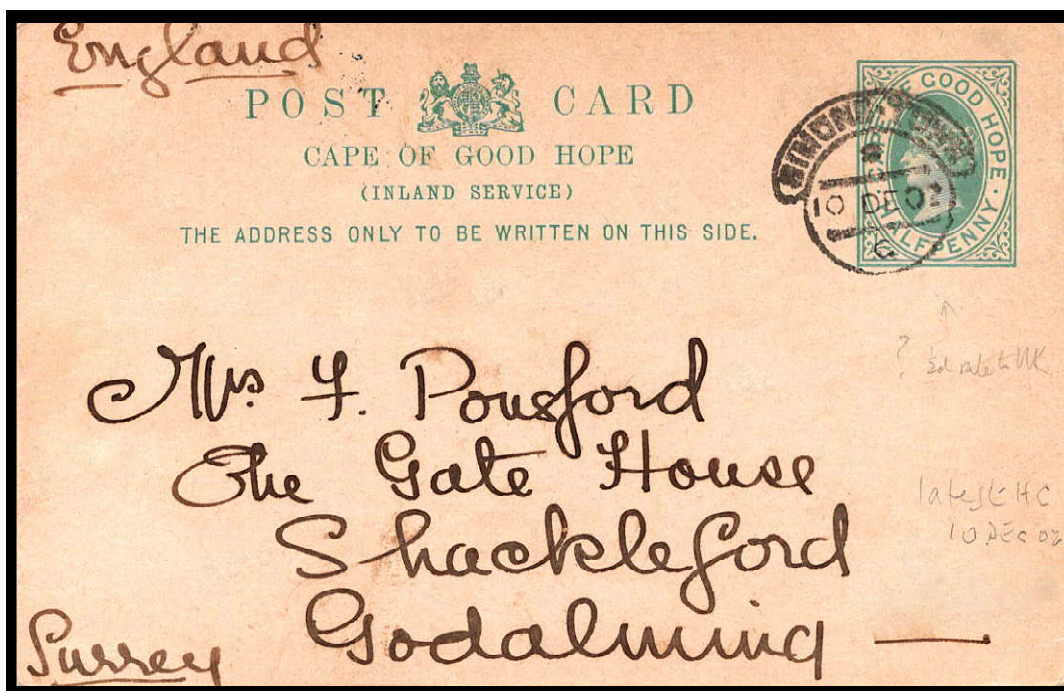 England
POST CARD
CAPE OF GOOD HOPE
(INLAND SERVICE)
THE ADDRESS ONLY TO BE WRITTEN ON THIS SIDE.
CAPE OF GOOD HOPE · HALFPENNY ·
10 DE 02
C
? ½d rate to UK
Mrs. F. Ponsford
The Gate House
Shackleford
Godalming —
Surrey
latest HC
10 DEC 02